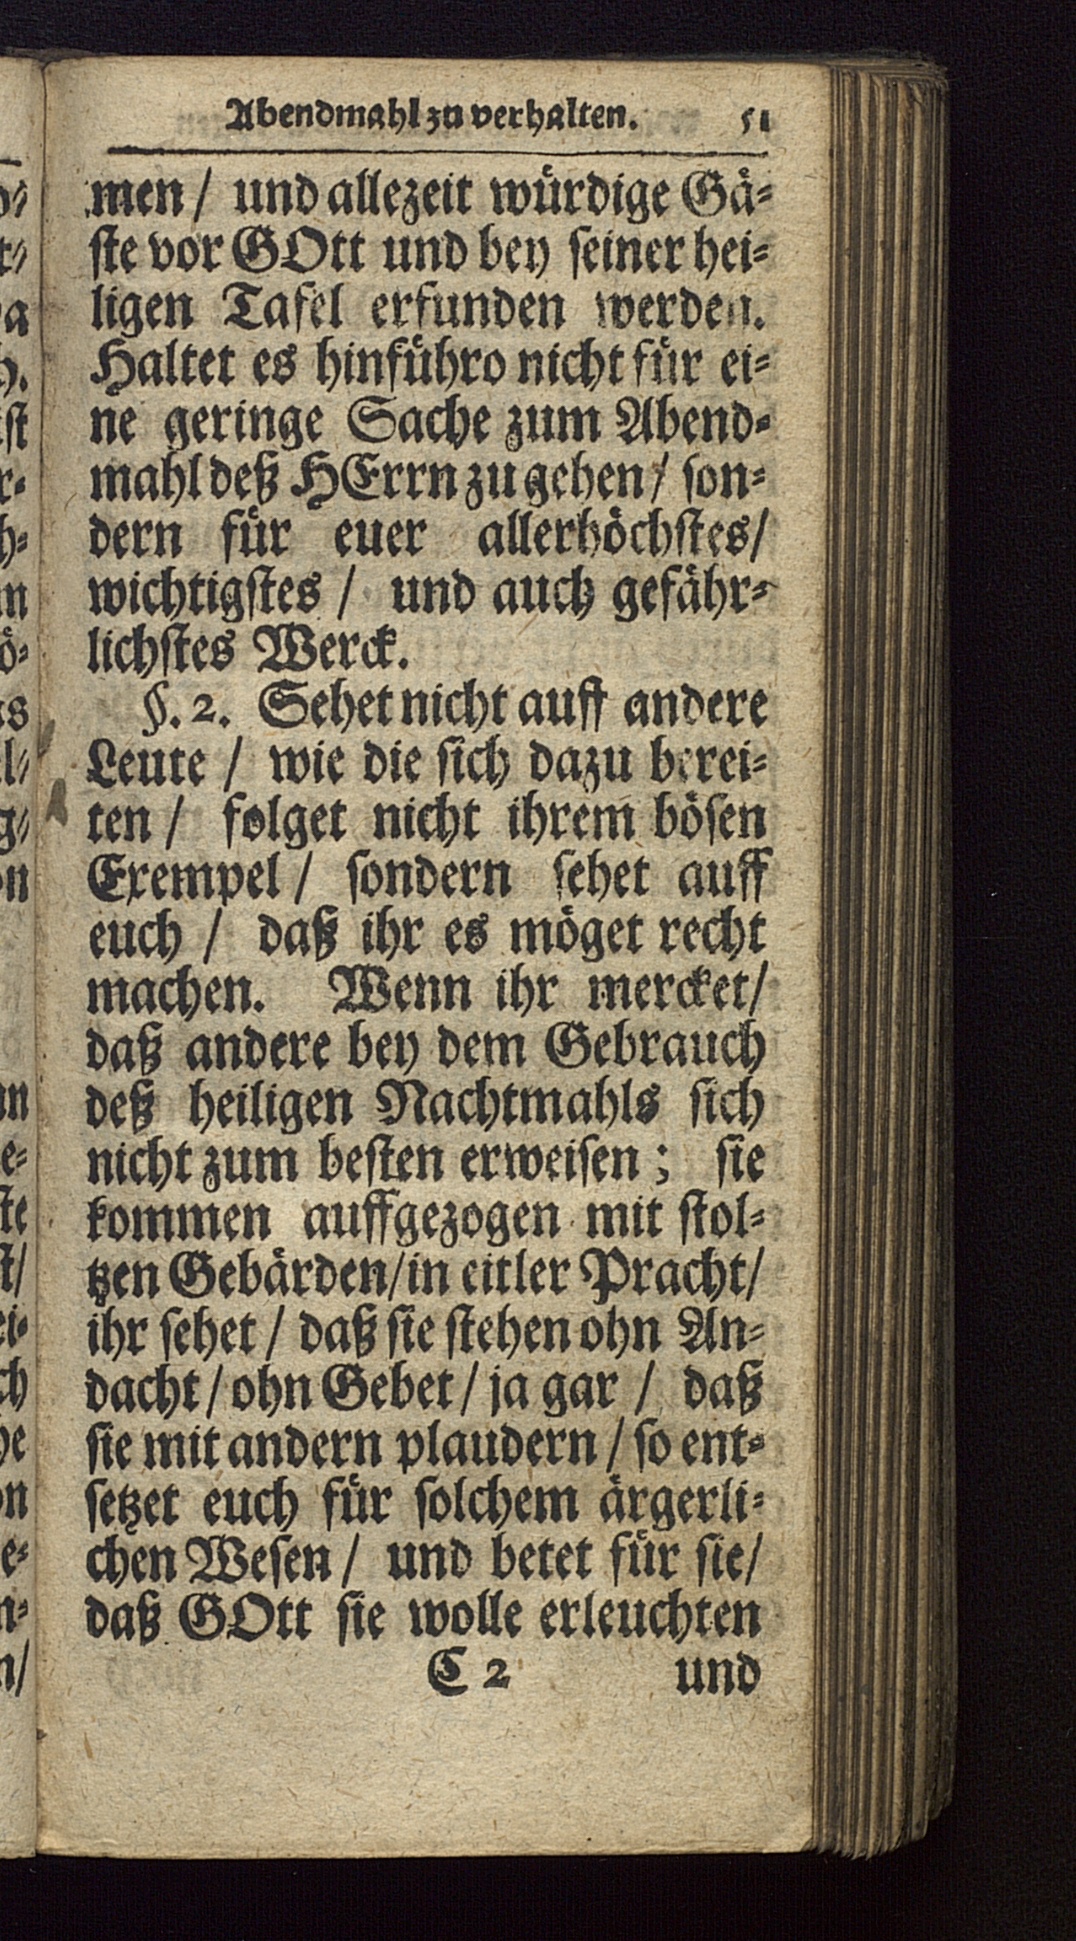 Abendmahl zu verhalten. 51
men / und allezeit würdige Gä-
ste vor GOtt und bey seiner hei-
ligen Tafel erfunden werden.
Haltet es hinführo nicht für ei-
ne geringe Sache zum Abend-
mahl deß HErrn zu gehen / son-
dern für euer allerhöchstes /
wichtigstes / und auch gefähr-
lichstes Werck.
§. 2. Sehet nicht auff andere
Leute / wie die sich dazu berei-
ten / folget nicht ihrem bösen
Exempel / sondern sehet auff
euch / daß ihr es möget recht
machen. Wenn ihr mercket /
daß andere bey dem Gebrauch
deß heiligen Nachtmahls sich
nicht zum besten erweisen ; sie
kommen auffgezogen mit stol-
tzen Gebärden / in eitler Pracht /
ihr sehet / daß sie stehen ohn An-
dacht / ohn Gebet / ja gar / daß
sie mit andern plaudern / so ent-
setzet euch für solchem ärgerli-
chen Wesen / und betet für sie /
daß GOtt sie wolle erleuchten
C 2 und